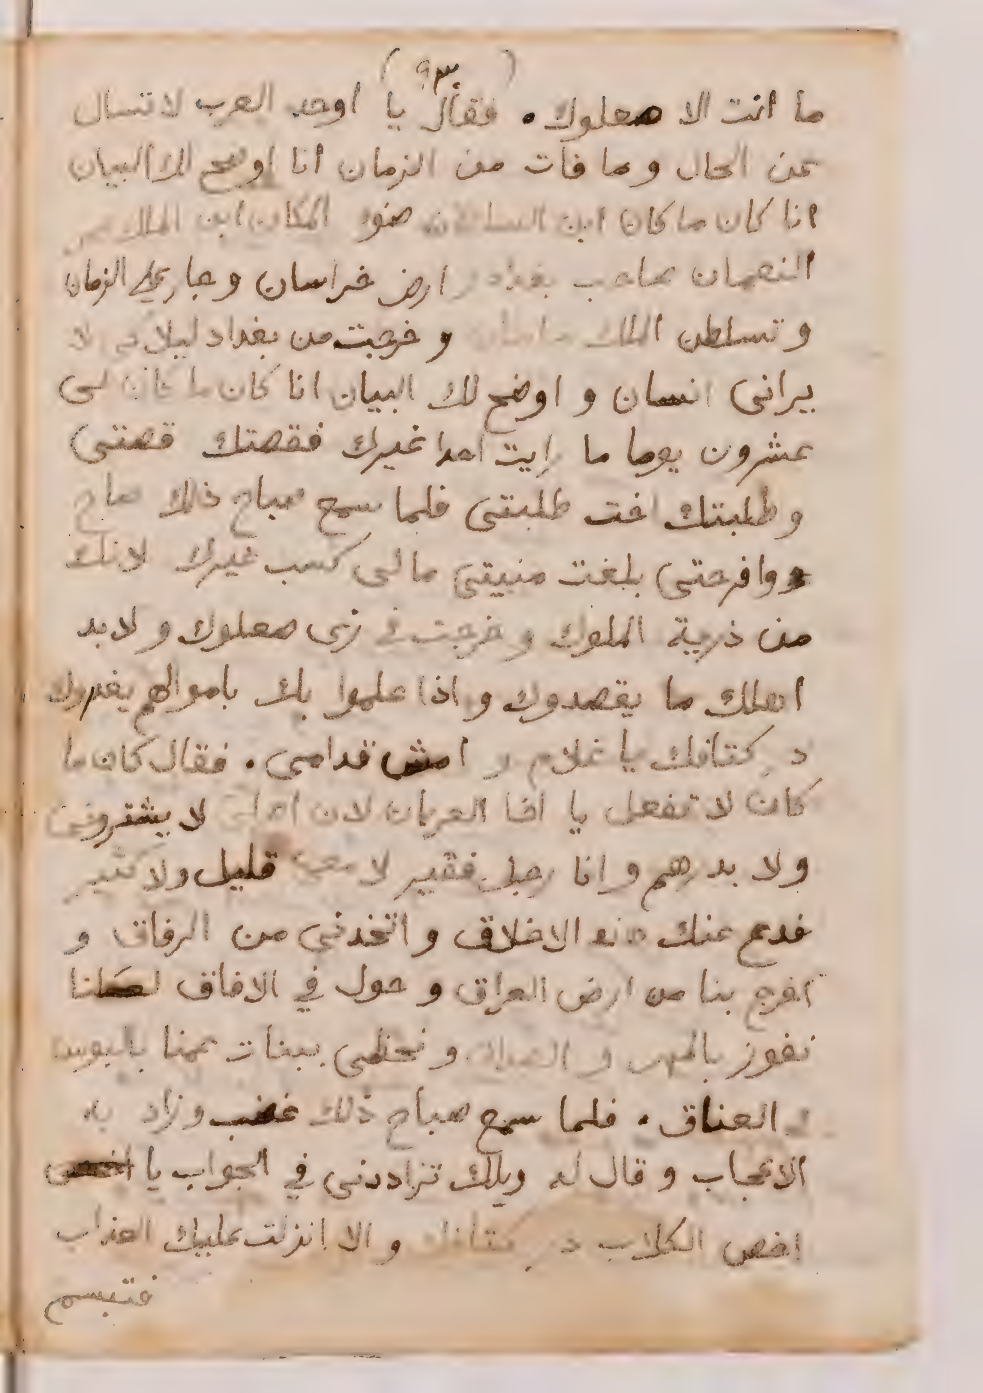 (٩٣)
ما انت الا صعلوك . فقال يا اوحد العرب لا تسال
عن الحال وما فات من الزمان انا اوضح لك البيان
انا كان ما كان ابن السلطان ضوء المكان ابن الملك عمر
النعمان صاحب بغداد و ارض خراسان وجار على الزمان
وتسلطن الملك ساسان وخرجت من بغداد ليلا لا
يرانى انسان و اوضح لك البيان انا كان ما كان لى
عشرون يوما ما رايت احدا غيرك فقصتك قصتى
وطلبتك اخت طلبتى فلما سمع صباح ذلك صاح
وافرحتى بلغت منيتى ما لى كسب غيرك لانك
من ذرية الملوك وخرجت فى زى صعلوك ولابد
اهلك ما يقصدوك واذا علموا بك باموالهم يفدوك
در كتافك يا غلام و امش قدامى . فقال كان ما
كان لا تفعل يا اخا العربان لان اهلى لا يشترونى
ولا بدرهم وانا رجل فقير لا معى قليل ولا كثير
فدع عنك هذه الاخلاق واتخذنى من الرفاق و
اخرج بنا من ارض العراق و جول فى الافاق لعلنا
نفوز بالمهر و الصداق ونحظى ببنات عمنا بالبوس
و العناق . فلما سمع صباح ذلك غضب وزاد به
الاعجاب وقال له ويلك تراددنى فى الجواب يا
اخس الكلاب در كتافك و الا انزلت عليك العذاب
فتبسم